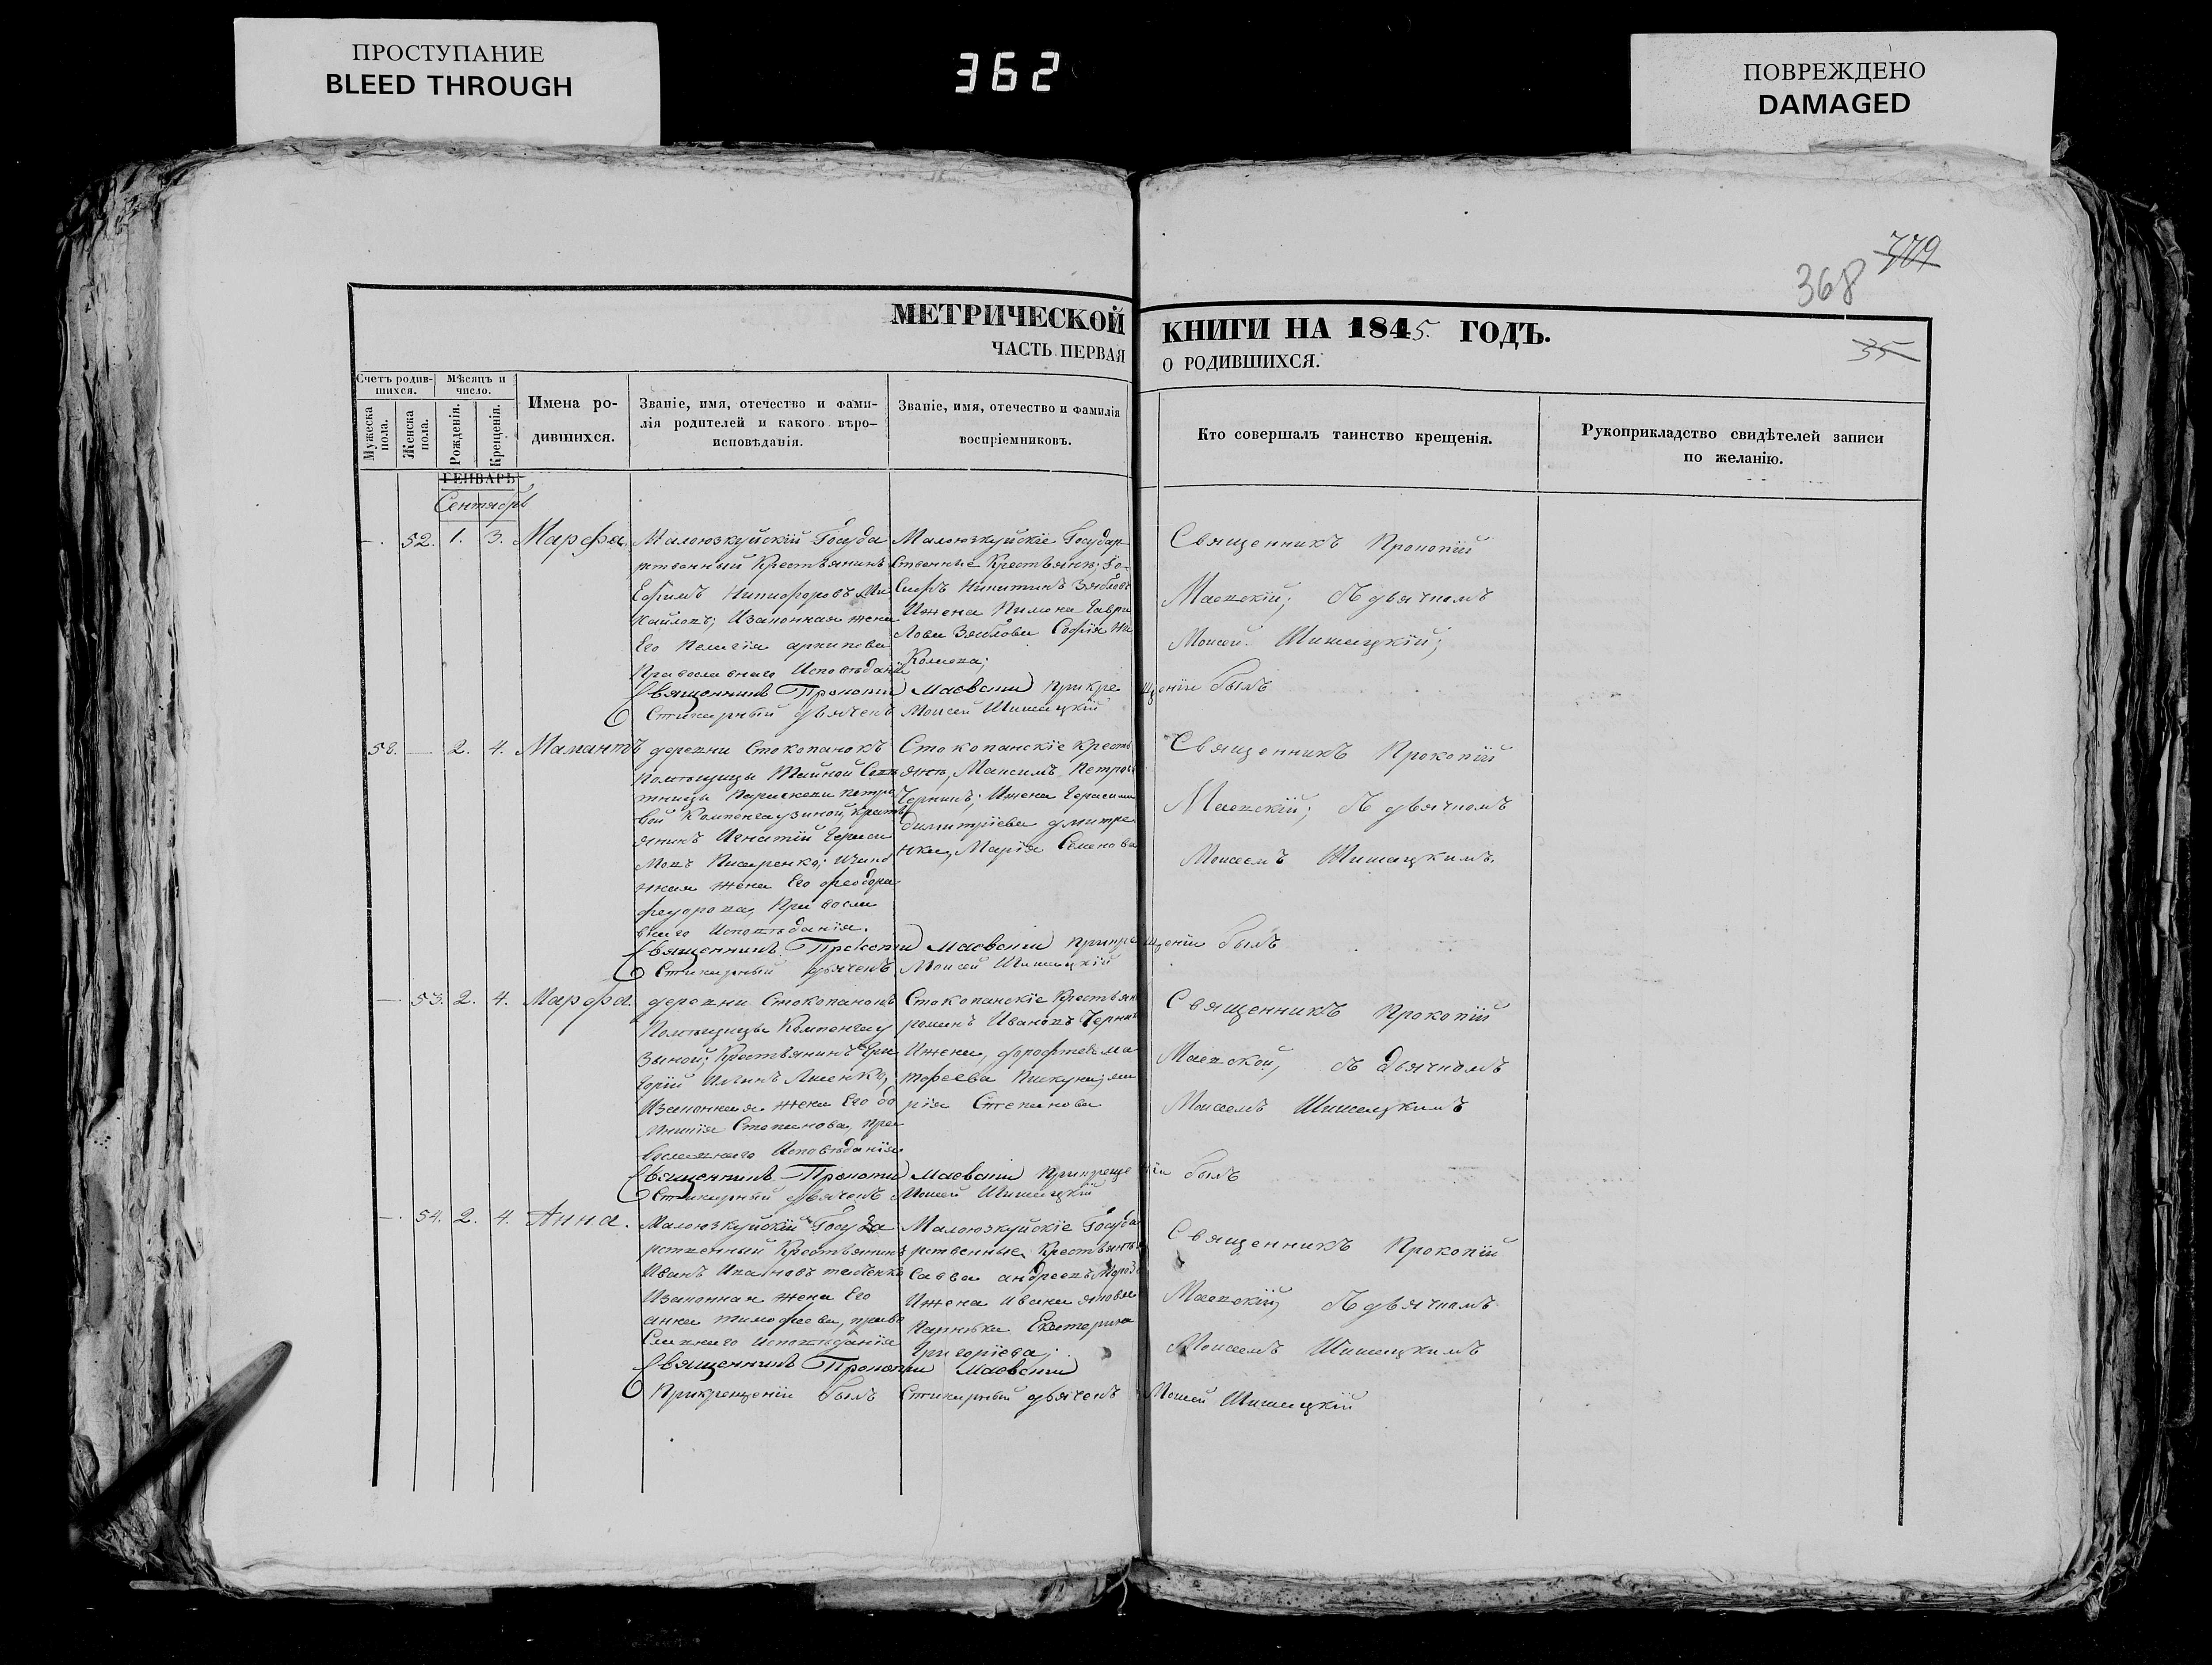 ПРОСТУПАНИЕ
BLEED THROUGH
362
ПОВРЕЖДЕНО
DAMAGED
779
368
35
МЕТРИЧЕСКОЙ КНИГИ НА 1845. ГОДЪ.
ЧАСТЬ ПЕРВАЯ О РОДИВШИХСЯ.
Счетъ родив-
шихся.
Мужеска
пола.
Женска
пола.
Мѣсяцъ и
число.
Рожденія.
Крещенія.
Имена ро-
дившихся.
Званіе, имя, отечество и фами-
лія родителей и какого вѣро-
исповѣданія.
Званіе, имя, отечество и фамилія
воспріемниковъ.
Кто совершалъ таинство крещенія.
Рукоприкладство свидѣтелей записи
по желанію.
ГЕНВАРЬ
Сентябрь
—. 52. 1. 3. Марфа.
Малоюзкуйскій Госуда
рственный Крестьянинъ
Ефимъ Никифоровъ Ми
хайловъ; Изаконная жена
Его Пелагія архипова
Православнаго Исповѣданія
Малоюзкуйскіе Государ-
Ственные Крестьяне; Іо-
Сифъ Никитинъ Зябловъ
Ижена Пимона Гаври
Лова Зяблова Софія Ни
Колаева;
Священникъ Прокопій
Маевскій; Съ дьячкомъ
Моисей Шишацкій;
Священникъ Прокопій Маевскій При крещеніи былъ
Стихарный дьячекъ Моисей Шишацкій
58. — 2. 4. Мамантъ
деревни Стокопанокъ
Помѣщицы Тайной Совѣ
тницы Параскевы Петро
вой Компенгаузиной, Кресть
янинъ Игнатій Гераси
мовъ Писаренко; Изако
нная жена Его феодора
федорова, Правосла
внаго Исповѣданія.
Стокопанскіе Кресть
яне, Максимъ Петровъ
Чернинъ; Ижена Герасима
димитріева дмитре
нка, Марія Семенова
Священникъ Прокопій
Маевскій; Съ дьячкомъ
Моисеемъ Шишацкимъ.
Священникъ Прокопій Маевскій При крещеніи былъ
Стихарный дьячекъ Моисей Шишацкій
— 53. 2. 4. Марфа.
деревни Стокопанокъ
Помѣщицы Компенгау
Зыной; Крестьянинъ Гри
горій Ильинъ Лисенко,
Изаконная жена Его до
мникія Степанова, Пра
вославнаго Исповѣданія
Стокопанскіе Крестьяне
романъ Ивановъ Черни
Ижена, дорофтея ма
тфеева Пискуна; ма
рія Степанова
Священникъ Прокопій
Маевской, Съ Дьячкомъ
Моисеемъ Шишацкимъ
Священникъ Прокопій Маевскій При крещеніи былъ
Стихарный дьячекъ Моисей Шишацкій
—. 54. 2. 4. Анна.
Малоюзкуйскій Госуда
рственный Крестьянинъ
Иванъ Ивановъ
Изаконная жена Его
анна тимофеева, право
Славнаго Исповѣданія
Малоюзкуйскіе Госуда
рственные Крестьяне
Савва андреевъ Мороз
Ижена ивана
Екатерина
Григоріева;
Священникъ Прокопій
Маевскій, Съ дьячкомъ
Моисеемъ Шишацкимъ
Священникъ Прокопій Маевскій
При крещеніи былъ Стихарный дьячекъ Моисей Шишацкій